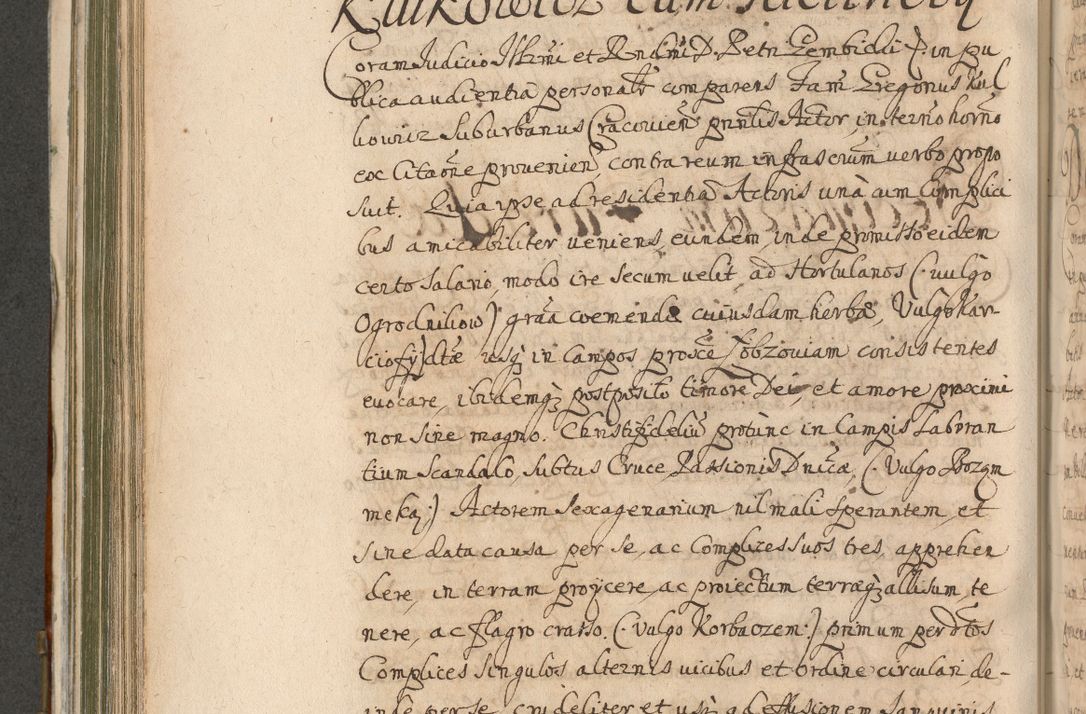 Kulkowicz cum
Coram Judicio Illrmi et Rndmi D. Petri Gembicki in pu
blica audientia personalr comparens Fam. Gregorius Kul
kowicz Suburbanus Cracovien pnntis Actor, in termo horno
ex Citaōne provenien, contra reum infrascrum verbo propo
suit. Quia ipse ad residentiā Actoris unà cum Compli
bus amicabiliter veniens, eundem inde promisso eidem
certo salario, modo ire secum velit, ad Hortulanos (: vulgo
Ogrodnikow) graā coemendi cuiusdam herbæ, Vulgo Kar-
ciofy) dtæ usq in Campos propè Lobzoviam consistentes
evocare, ibidemq postposito timore Dei, et amore proximi
non sine magno Christifideliū protunc in Campis Laboran
tium scandalo, subtus Cruce Passionis Dnicæ, (: Vulgo Bozym
meką :) Actorem Sexagenarium nil mali sperantem, et
sine data causa per se, ac Complices suos tres, apprehen
dere, in terram proijcere, ac proiectum terræq allisum, te
nere, ac flagro crasso, (: Vulgo Korbaczem :) primum per dtos
Complices singulos alternis vicibus et ordine circulari, de-
inde per se, crudeliter et usq ad effusionem sanguinis